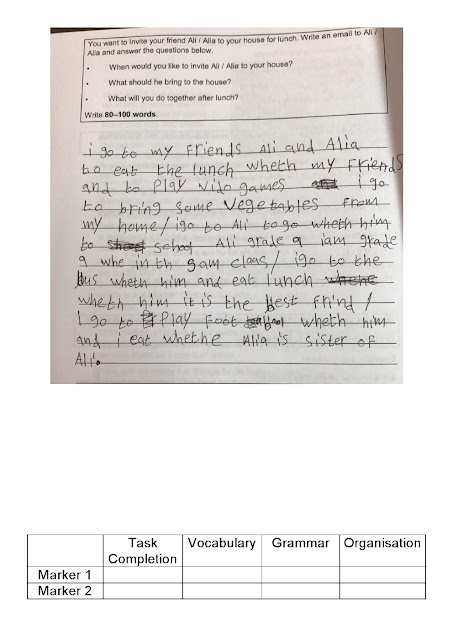 You want to invite your friend Ali / Alia to your house for lunch. Write an email to Ali /
Alia and answer the questions below.
• When would you like to invite Ali / Alia to your house?
• What should he bring to the house?
• What will you do together after lunch?
Write 80–100 words.
i go to my Friends Ali and Alia
to eat the lunch wheth my Friends
and to Play Vido games i go
to bring some Vegetables From
my home / igo to Ali to go wheth him
to school Ali grade 9 iam grade
9 whe in th sam claas / igo to the
bus wheth him and eat lunch
wheth him it is the best Frind /
I go to Play Foot wheth him
and i eat whethe Alia is sister oF
Ali.
Task Completion Vocabulary Grammar Organisation
Marker 1
Marker 2